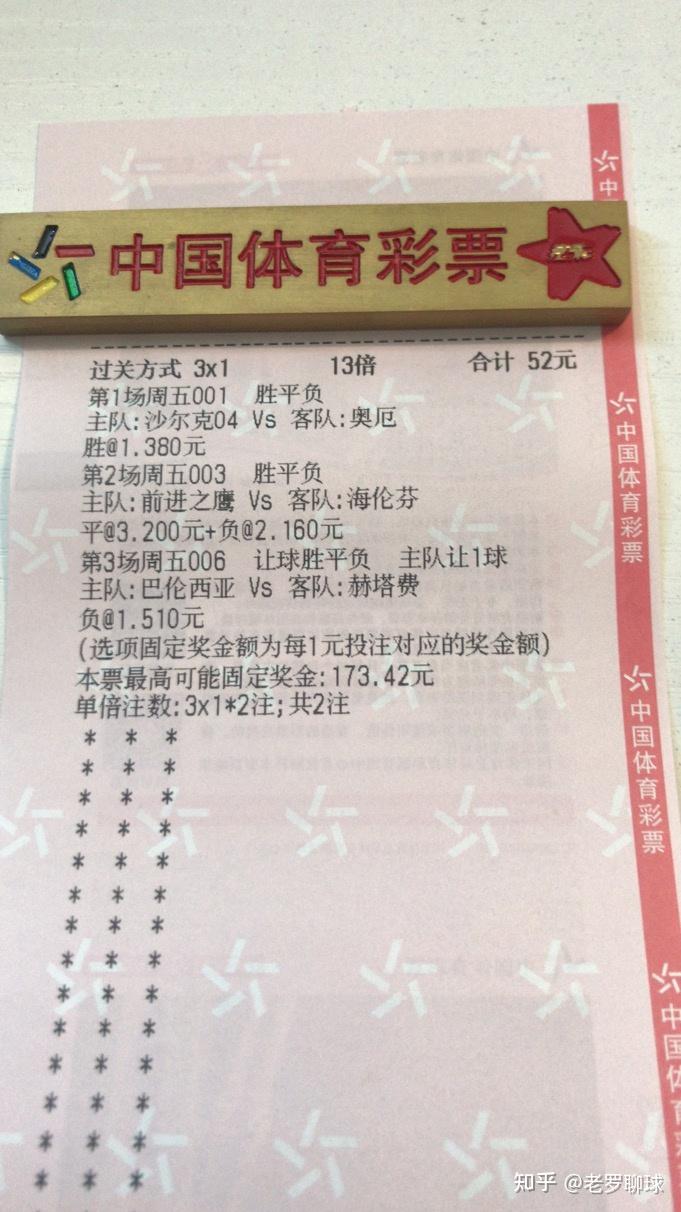 中
中国体育彩票
过关方式 3x1 13倍 合计 52元
第1场周五001 胜平负
主队:沙尔克04 Vs 客队:奥厄
胜@1.380元
第2场周五003 胜平负
主队:前进之鹰 Vs 客队:海伦芬
平@3.200元+负@2.160元
第3场周五006 让球胜平负 主队让1球
主队:巴伦西亚 Vs 客队:赫塔费
负@1.510元
(选项固定奖金额为每1元投注对应的奖金额)
本票最高可能固定奖金:173.42元
单倍注数:3x1*2注;共2注
* * *
* * *
* * *
* * *
* * *
* * *
* * *
* * *
* * *
* * *
* * *
* * *
* * *
* * *
中国体育彩票
中国体育彩票
中国体育
知乎 @老罗聊球